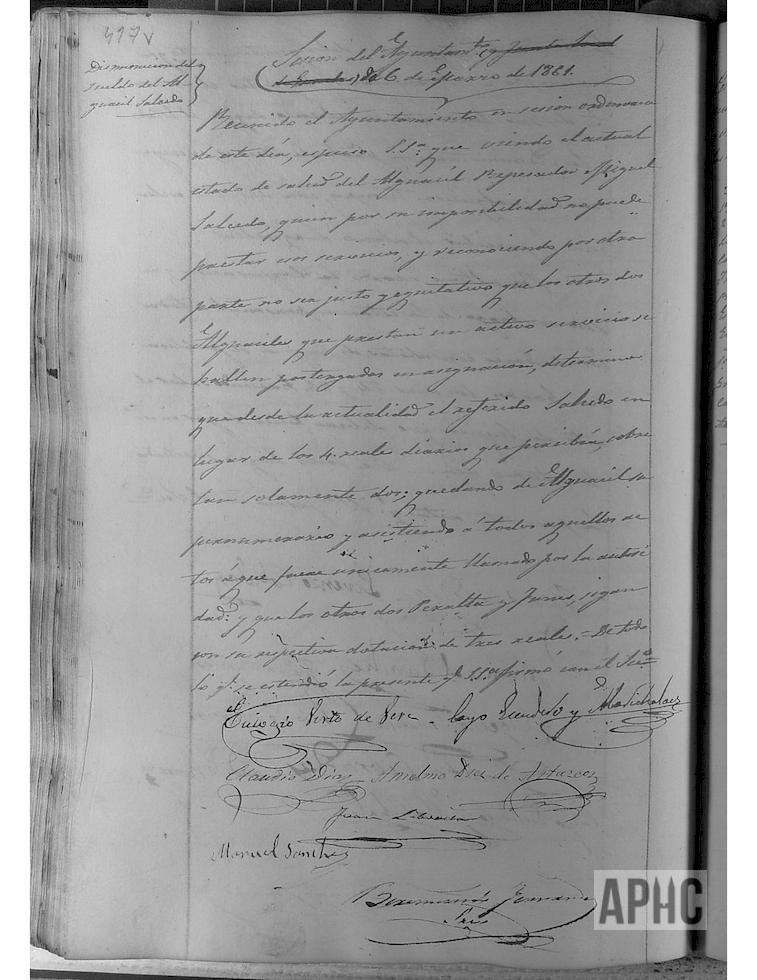 497v
Disminucion del
sueldo del Al-
guacil Salcedo
Sesion del Ayuntamto y Junta local
de 6 de Marzo de 1861.
Reunido el Ayuntamiento en sesion ordinaria
de este dia, espuso S.Sa. que viendo el actual
estado de salud del Alguacil Repesador Miguel
Salcedo, quien por su imposibilidad no puede
prestar sus servicios, y reconociendo por otra
parte no sea justo y equitativo que los otros dos
Alguaciles que prestan un activo servicio se
hallen postergados en asignación, determino
que desde la actualidad el referido Salcedo en
lugar de los 4 reales diarios que percibia, cobre
tan solamente dos; quedando de Alguacil su
pernumerario y asistiendo á todos aquellos ac
tos á que fuese unicamente llamado por la autori
dad: y que los otros dos Peralta y Funes, sigan
con su respectiva dotacion de tres reales.= De todo
lo q. se estendió la presente q. SSa. firmó con el Secro.
Eulogio de Vera Cayo y
Claudio Diez Anselmo Diez de
Juan
Manuel Sanchez
Fernandez
Srio
APHC